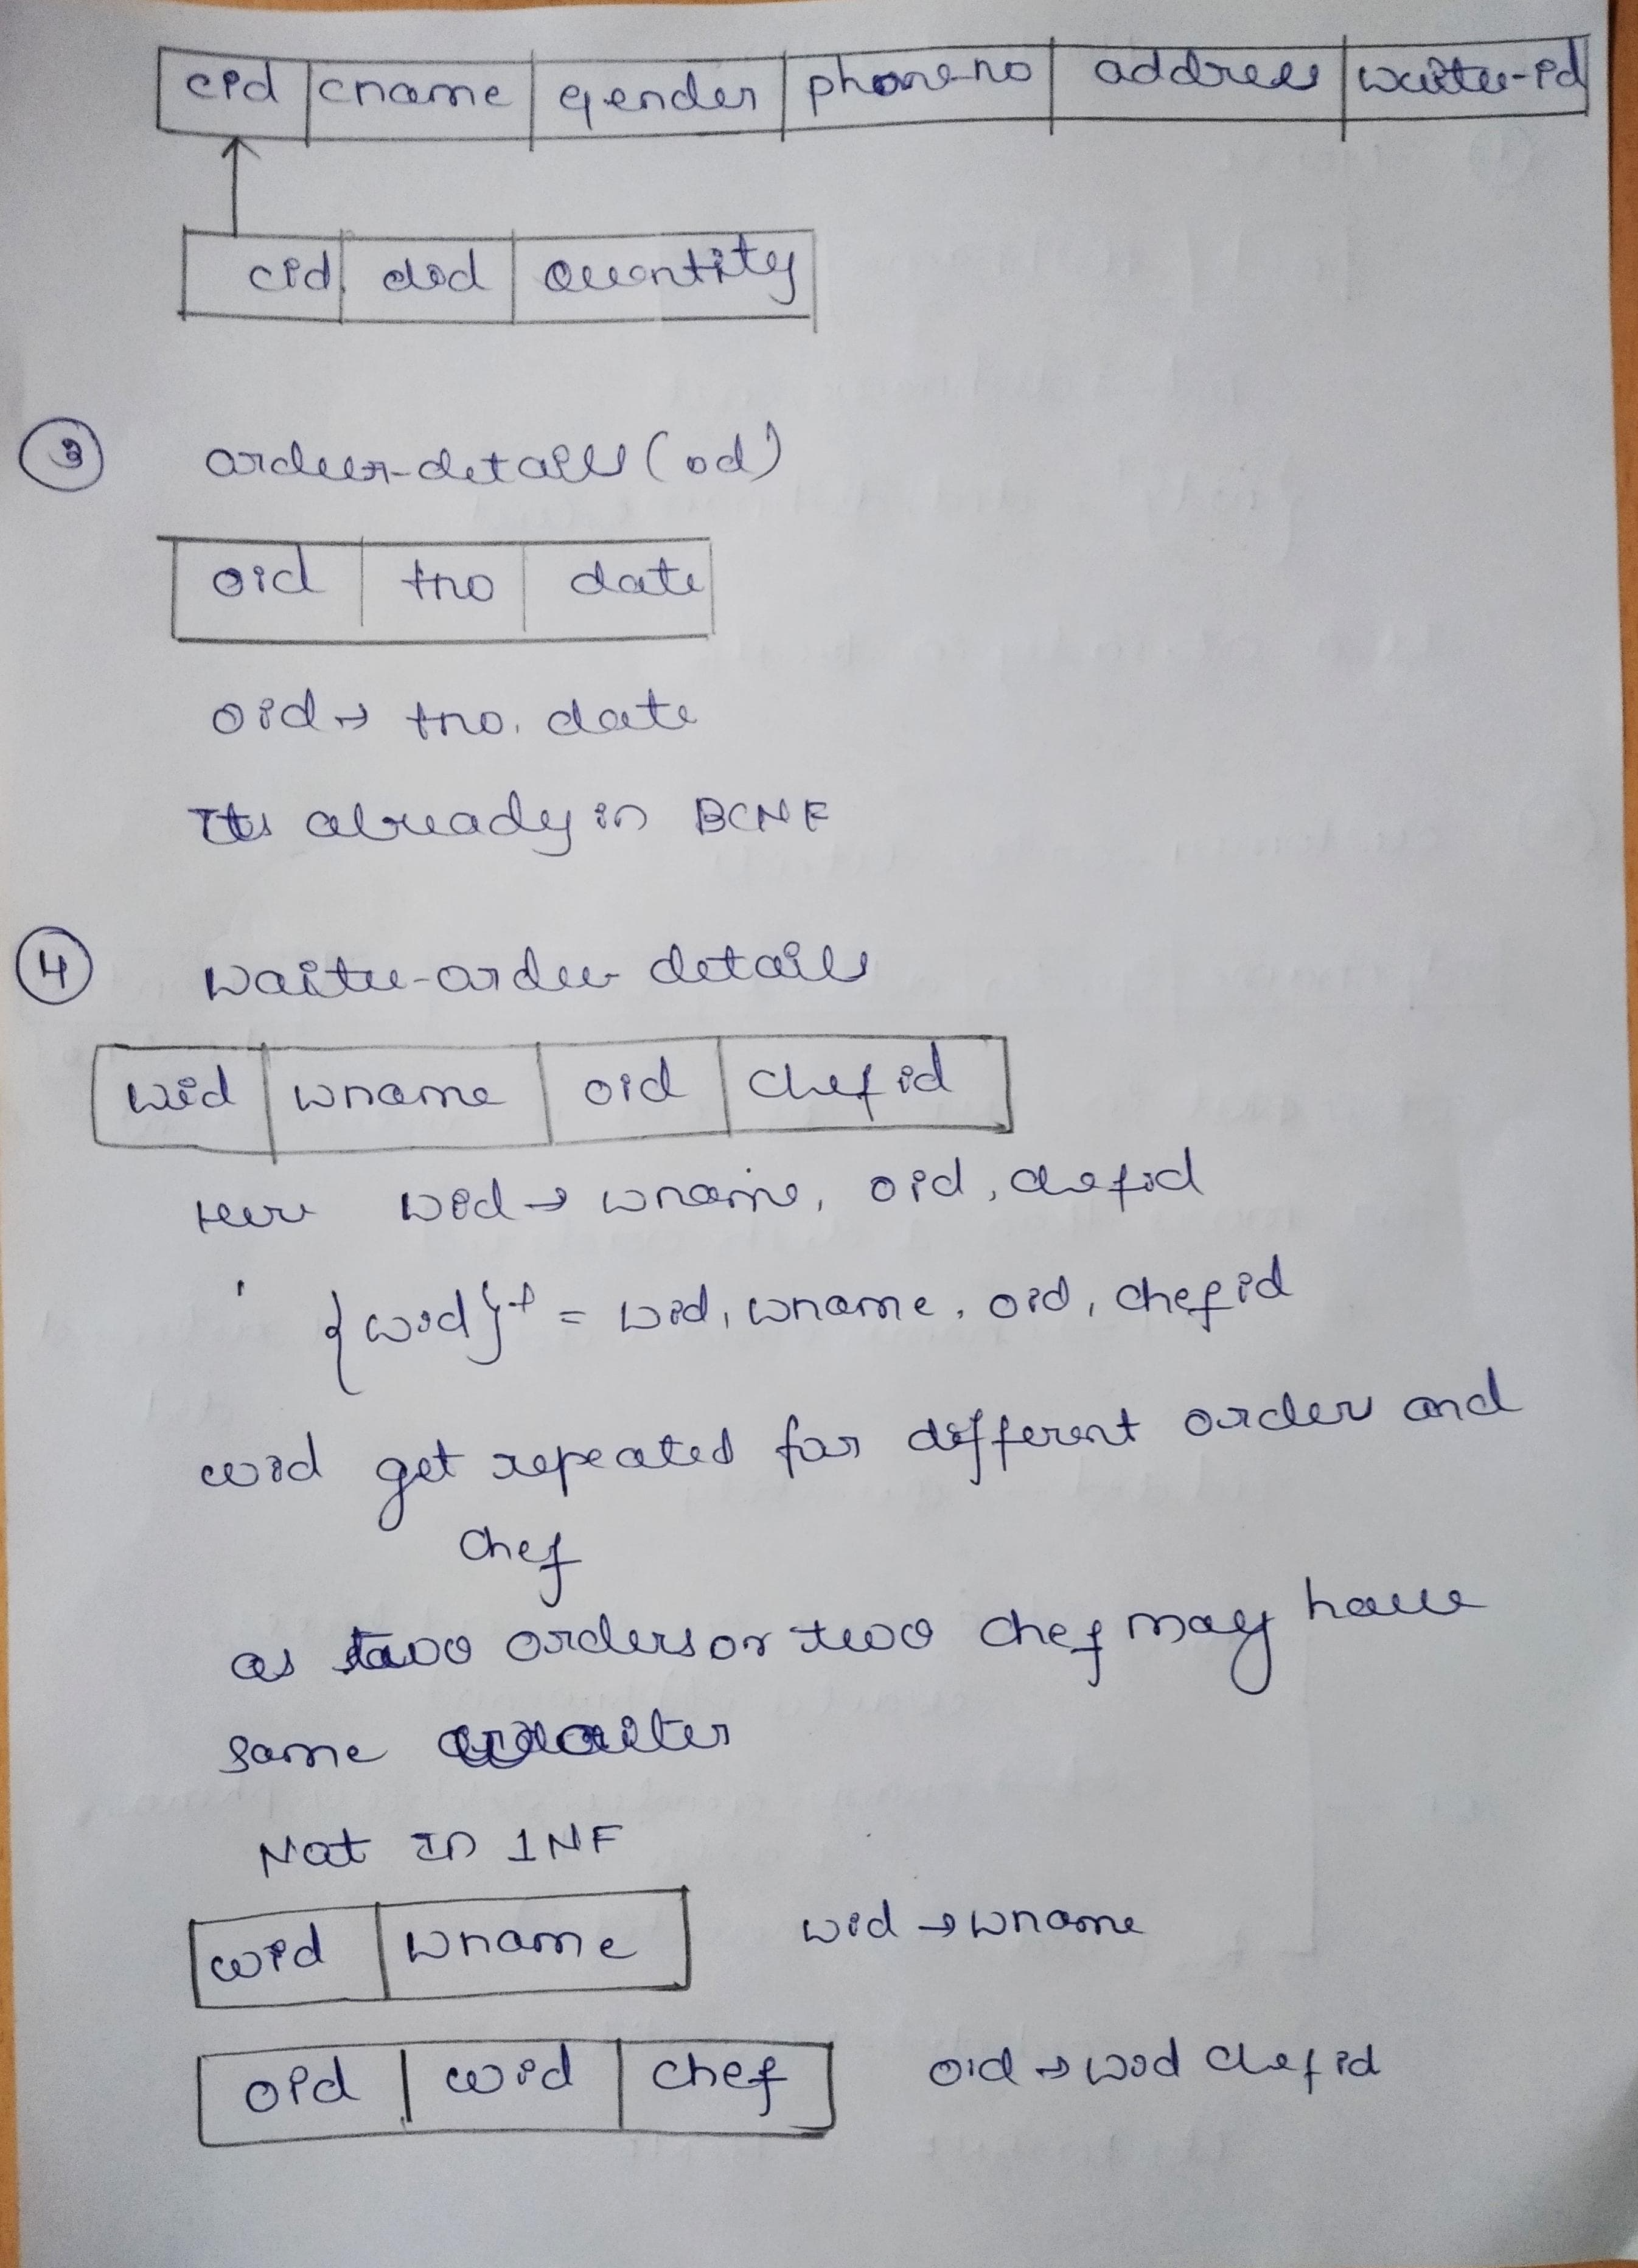 cid cname gender phone-no address waiter-id
cid did Quantity
3 order-details (od)
oid tno date
oid → tno, date
Its already in BCNF
4 waiter-order details
wid wname oid chefid
Here wid → wname, oid, chefid
{wid}+ = wid, wname, oid, chefid
wid get repeated for different order and
chef
as two orders or two chef may have
same waiter
Not In 1NF
wid wname wid → wname
oid wid chef oid → wid chefid